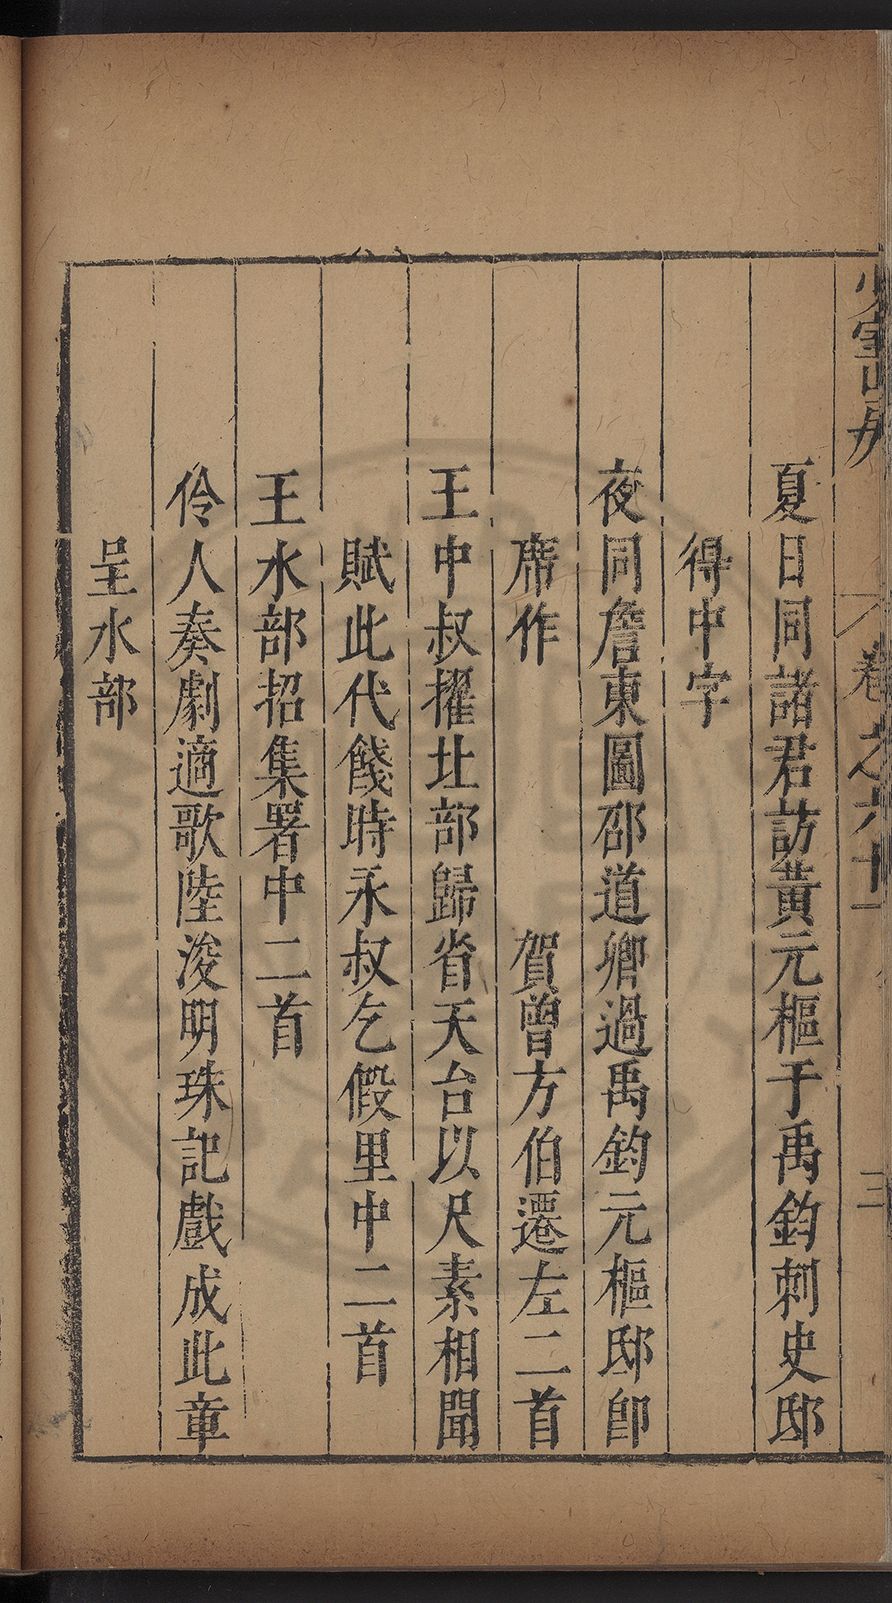 少室山房
卷之六十一
三
夏日同諸君訪黃元樞于禹鈞刺史邸
得中字
夜同詹東圖邵道卿過禹鈞元樞邸卽
席作
賀曾方伯遷左二首
王中叔擢北部歸省天台以尺素相聞
賦此代餞時永叔乞假里中二首
王水部招集署中二首
伶人奏劇適歌陸浚明珠記戲成此章
呈水部